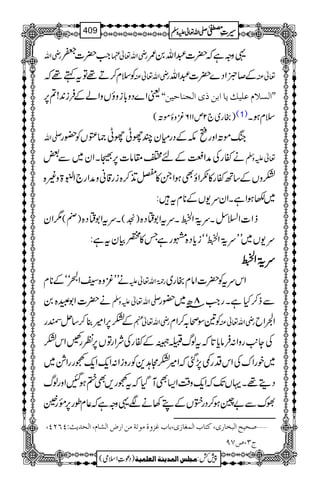 سیرتِ مصطفیٰ صلی اللہ تعالیٰ علیہ وسلم 409
یہی وجہ ہے کہ حضرت عبداللہ بن عمر رضی اللہ تعالیٰ عنہما جب حضرت جعفر رضی اللہ
تعالیٰ عنہ کے صاحبزادے حضرت عبداللہ رضی اللہ تعالیٰ عنہ کو سلام کرتے تھے تو یہ کہتے تھے کہ
”السلام علیك یا ابن ذی الجناحین“ یعنی اے دو بازوؤں والے کے فرزند! تم پر
سلام ہو۔ (1) (بخاری ج۲ ص۶۱۱ غزوۂ موتہ)
جنگ موتہ اور فتح مکہ کے درمیان چند چھوٹی چھوٹی جماعتوں کو حضور صلی اللہ
تعالیٰ علیہ وسلم نے کفار کی مدافعت کے لئے مختلف مقامات پر بھیجا۔ ان میں سے بعض
لشکروں کے ساتھ کفار کا ٹکراؤ بھی ہوا جن کا مفصل تذکرہ زرقانی و مدارج النبوۃ وغیرہ
میں لکھا ہوا ہے۔ ان سریوں کے نام یہ ہیں:
ذات السلاسل۔ سریۃ الخبط۔ سریہ ابوقتادہ (نجد)۔ سریہ ابوقتادہ (صنم) مگر ان
سریوں میں ”سریۃ الخبط“ زیادہ مشہور ہے جس کا مختصر بیان یہ ہے:
سریۃ الخبط
اس سریہ کو حضرت امام بخاری رحمۃ اللہ تعالیٰ علیہ نے ”غزوہ سیف البحر“ کے نام
سے ذکر کیا ہے۔ رجب ۸ھ میں حضور صلی اللہ تعالیٰ علیہ وسلم نے حضرت ابوعبیدہ بن
الجراح رضی اللہ تعالیٰ عنہ کو تین سو صحابہ کرام رضی اللہ تعالیٰ عنہم کے لشکر پر امیر بنا کر ساحل سمندر
کی جانب روانہ فرمایا تاکہ یہ لوگ قبیلہ جہینہ کے کفار کی شرارتوں پر نظر رکھیں اس لشکر
میں خوراک کی اس قدر کمی پڑ گئی کہ امیر لشکر مجاہدین کو روزانہ ایک ایک کھجور راشن میں
دیتے تھے۔ یہاں تک کہ ایک وقت ایسا بھی آ گیا کہ یہ کھجوریں بھی ختم ہو گئیں اور لوگ
بھوک سے بے چین ہو کر درختوں کے پتے کھانے لگے یہی وجہ ہے کہ عام طور پر مؤرخین
صحیح البخاری، کتاب المغازی، باب غزوة موتة من ارض الشام، الحدیث: ٤٢٦٤،
ج٣، ص٩٧
پیش کش: مجلس المدینة العلمیة (دعوتِ اسلامی)